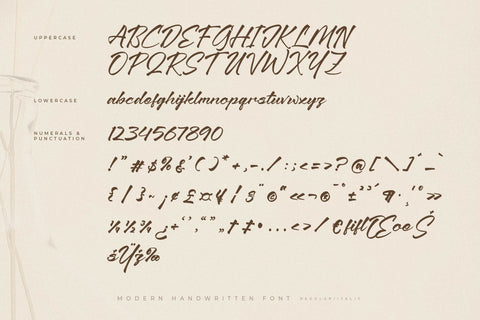 UPPERCASE
ABCDEFGHIJKLMN
OPQRSTUVWXYZ
LOWERCASE
abcdefghijklmnopqrstuvwxyz
NUMERALS &
PUNCTUATION
1234567890
!"#$%&'()*+,-./:;<=>?@[\]^_`
{|}~¡¢£¤¥¦§¨©ª«¬®¯°±²³´¶·¸¹º»
¼½¾¿÷‘’“”„†‡•…‹›/€fifl
MODERN HANDWRITTEN FONT REGULAR/ITALIC